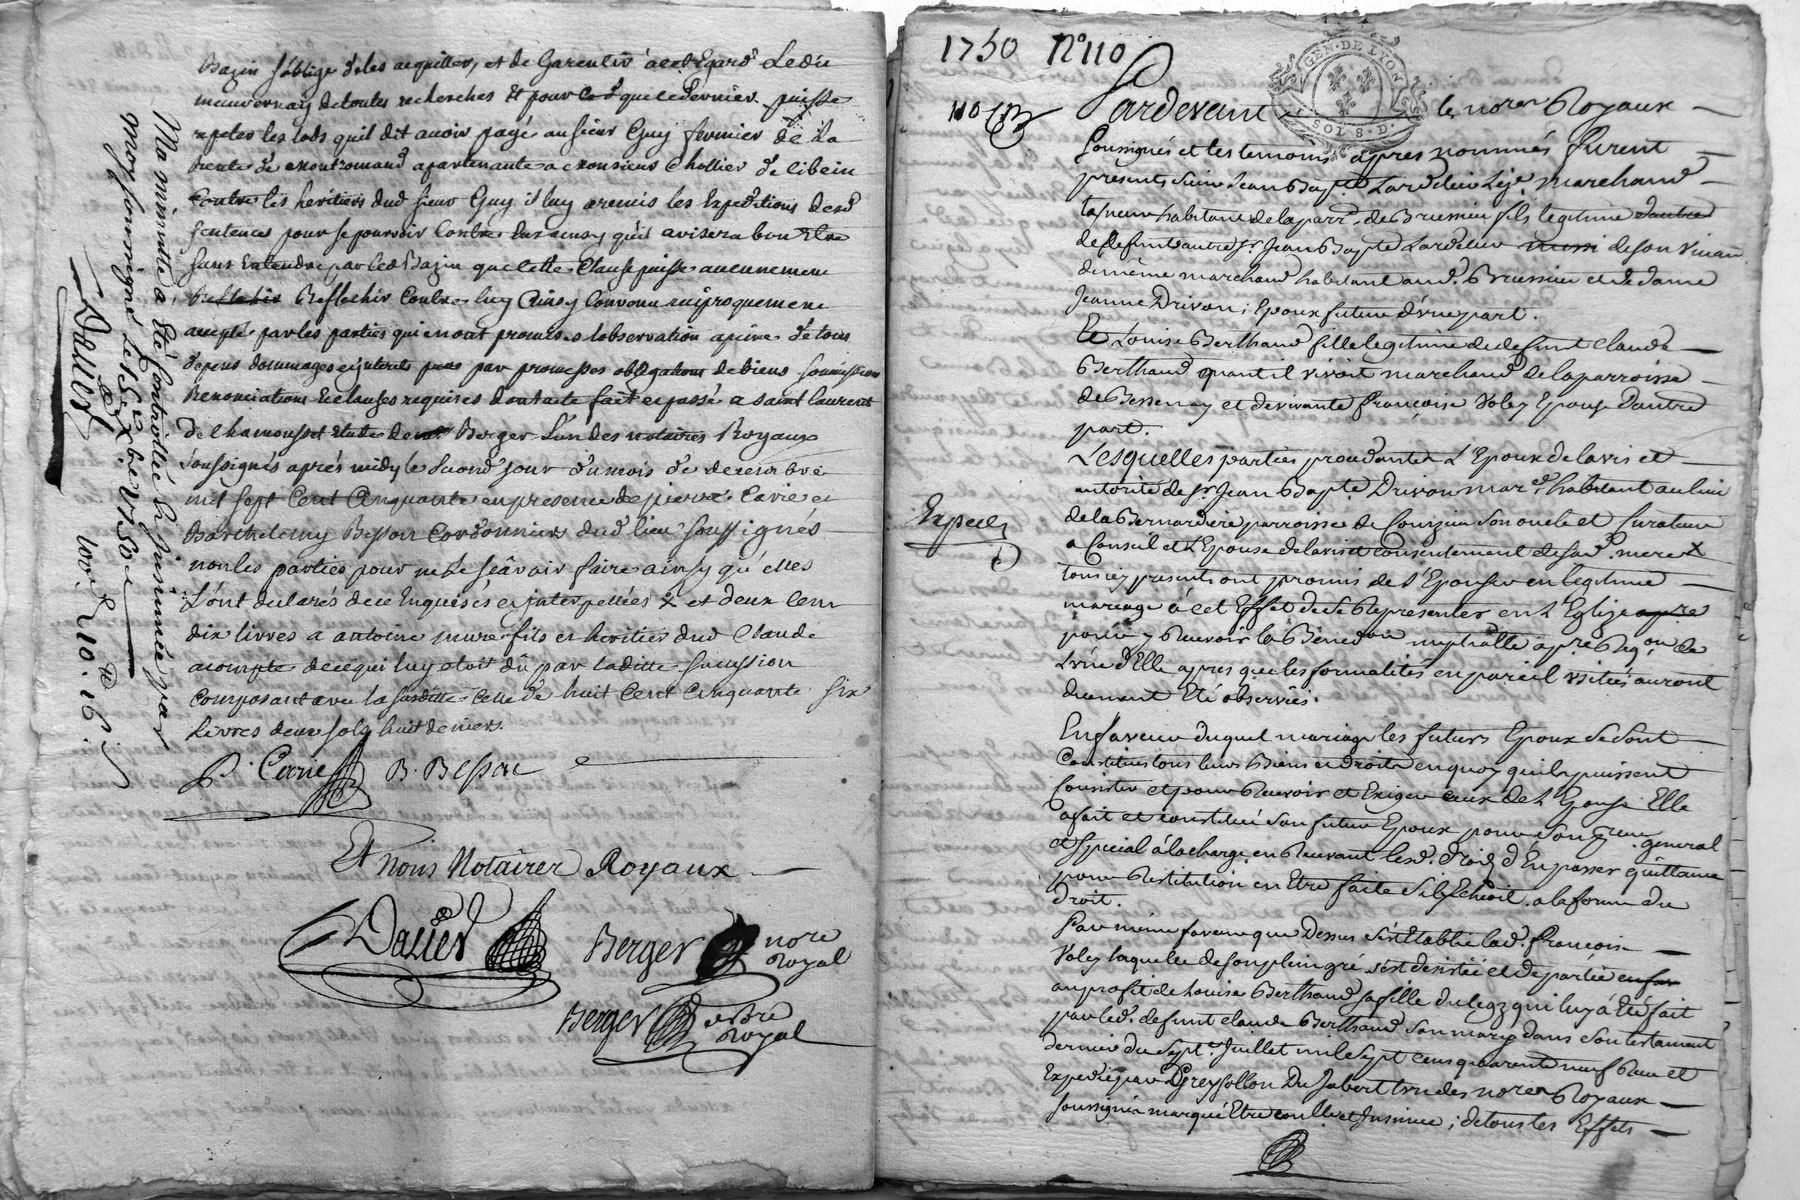 Bazin s'oblige de les acquitter, et de Garentir à cet Egard Ledit
meuvernay de toutes recherches Et pour ced que ledernier puisse
repeter les lods quil dit avoir payé au sieur Guy fermier de la
rente de montromand apartenante a monsieur Chollier de Cibein
Contre les héritiers dud sieur Guy il luy a remis les Expeditions desd
sentences pour se pourvoir Contre eux ainsy qu'il avisera bon Etre
sans Entendre par led Bazin que cette Clause puisse aucunement
Reflechir Contre luy Ainsy Convenu reciproquement
accepté par les parties qui en ont promis l'observation a peine de tous
depens dommages et interets par promesses obligations de biens soumission
Renonciations Et clauses requises dont acte fait et passé a saint laurent
De Chamousset Etude de Berger L'un des notaires Royaux
soussignés après midy le second jour du mois de decembre
mil sept Cent Cinquante en presence de pierre Carie et
Barthelemy Besson Cordonnier dud lieu soussignés
non les parties pour ne le sçavoir faire ainsy qu'elles
L'ont declarés de ce Enquises et interpellées x et deux Cent
dix livres a antoine mure fils et heritier dud Claude
acompte de ce qui luy etoit dû par laditte succession
composant avec la susditte celle de huit Cent Cinquante six
Livres deux sols huit deniers.
P. Carie B. Besson
Et nous Notaires Royaux
Dallier Berger nore
Royal
Berger notre
Royal
Ma minutte a Eté controllée et insinuée par
moy soussigné Le 13e Xbre 1750
Dallier
1750 N° 110
GEN. DE LYON
SOL 8. D.
Pardevant les nores Royaux
soussignés et les temoins apres nommés furent
presents sieur Jean Bapte Lardelier Marchand
taneur habitant de la parr. de Brussieu fils legitime
de defunt autre sr. Jean Bapte Lardelier de son vivant
de même marchand habitant aud. Brussieu et de dame
Jeanne Drivon; Epoux futur d'une part.
Et Louise Berthaud fille legitime de defunt Claude
Berthaud quant il vivoit marchand de la parroisse
de Bessenay et de vivante françoise Voley Epouse d'autre
part.
Lesquelles parties procedantes L'Epoux de lavis et
autorité de sr. Jean Bapte. Drivon mard. habitant au lieu
de la Bernardiere parroisse de Courzieu son oncle et Curateur
a Conseil et L'Epouse de lavis et consentement de sad. mere x
tous icy presents ont promis de s'Epouser en legitime
mariage à cet Effet de se Representer en L'Eglise
pour y Recevoir la Bénedon nuptialle apres Reqon de
L'une d'Elle apres que les formalités en pareil usitées auront
duement Eté observées.
En faveur duquel mariage les futurs Epoux se sont
Constitués tous leurs Biens et Droits en quoy quils puissent
Consister et pour Recevoir et Exiger ceux de L'Epouse Elle
a fait et constitué son futur Epoux pour son Procureur general
et special à la charge en Recevant lesd. Droits d'En passer quittance
pour Restitution en Etre faite s'il Echeoit. a la forme du
Droit.
Par même faveur que Dessus s'est Etablie lad. françoise
Voley laquelle de son plein gré s'est desistée et departie
au profit de Louise Berthaud sa fille du legz qui luy à Eté fait
par led. defunt Claude Berthaud son mary dans son testament
dernier du sept Juillet mil sept cens quarente neuf Reçu et
Expedié par Greysollon Du Jabert l'un des nores Royaux
soussignés marqué Etre conllé et Insinué; de tous les Effets
Exped